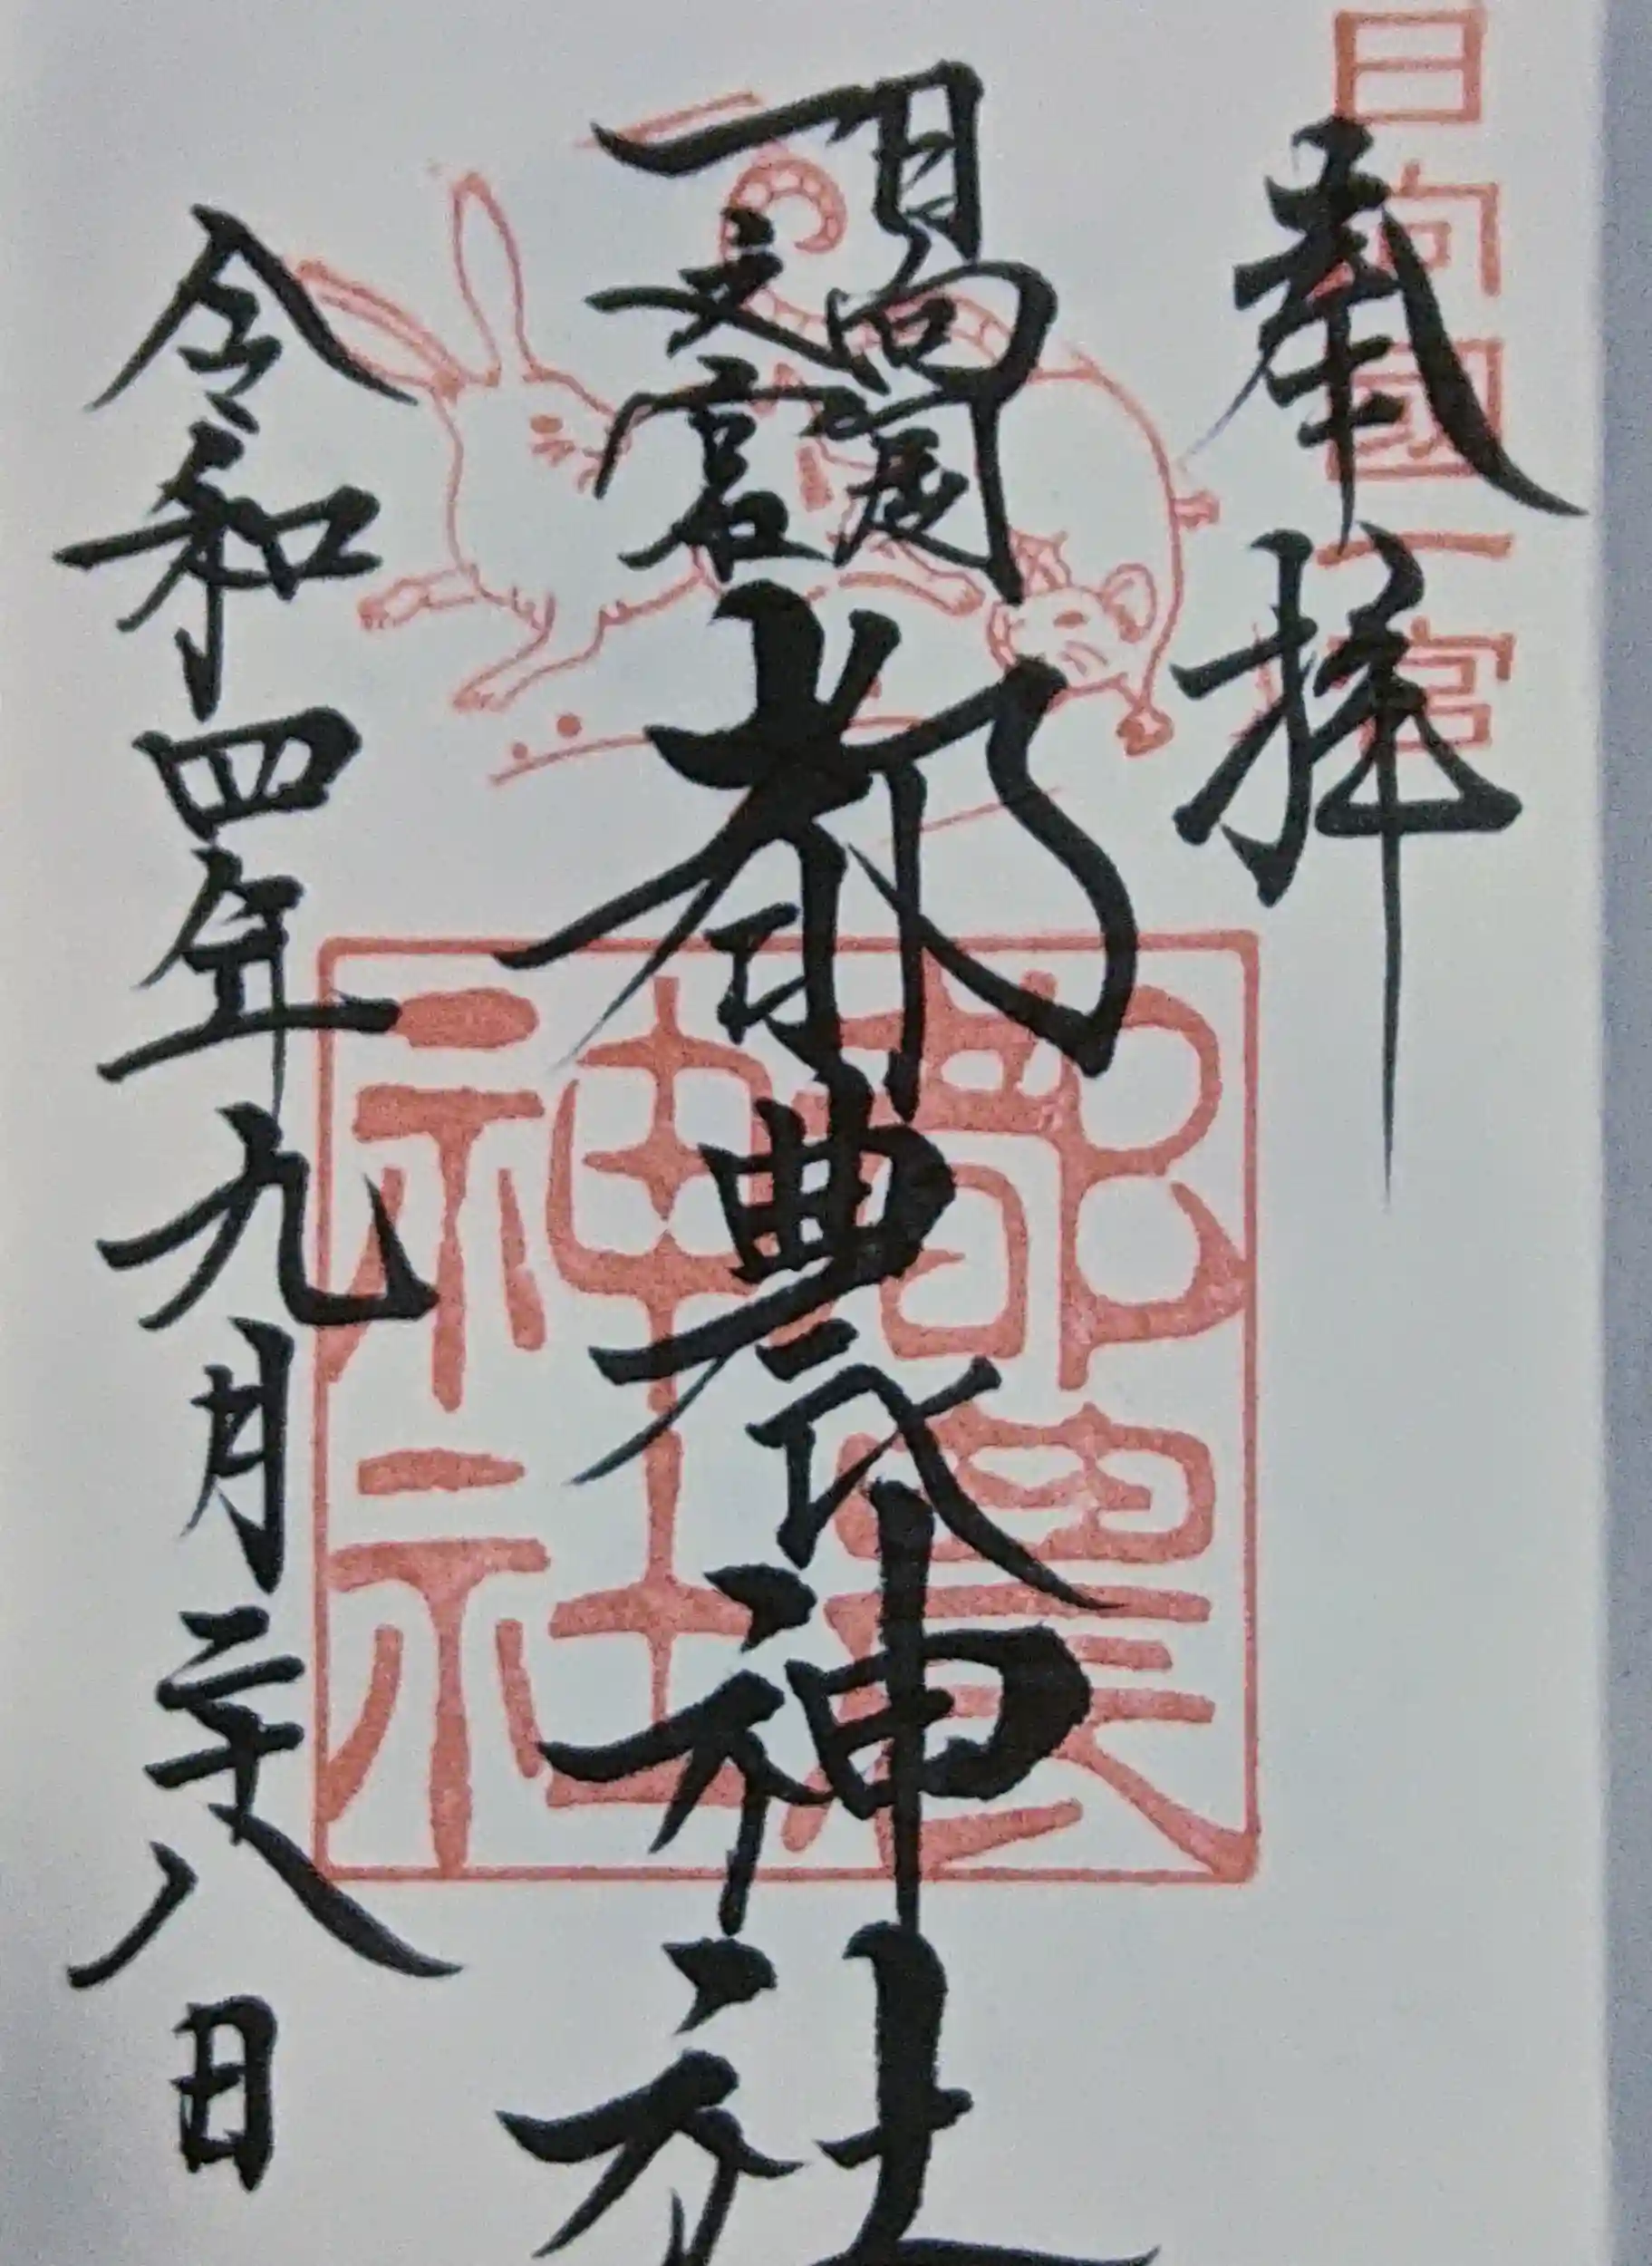 日向國一宮
奉拝
日向国
一之宮
都農神社
都農神社
令和四年九月二十八日